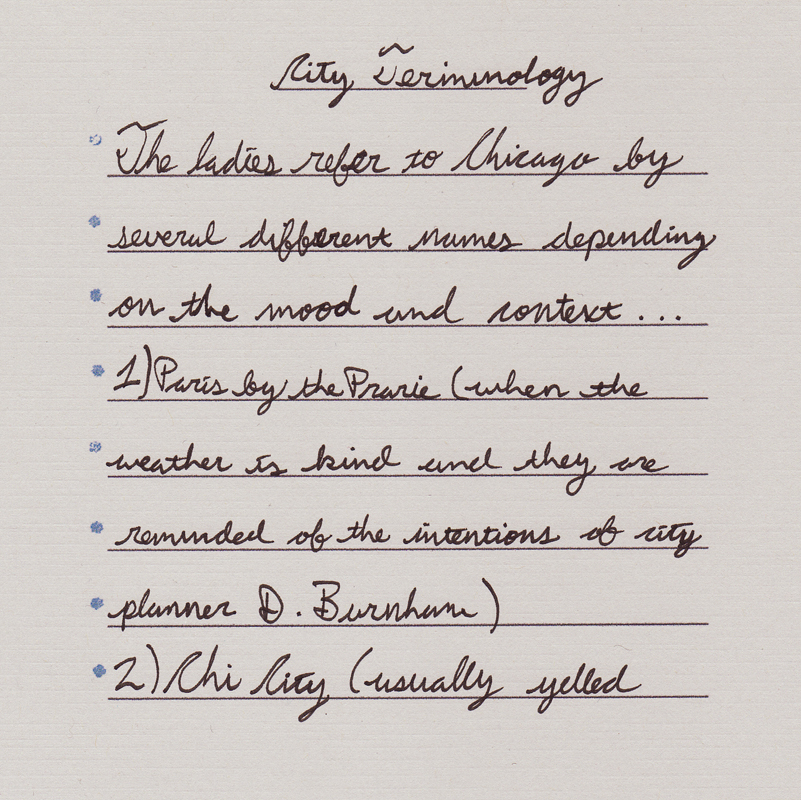 City Terminology
The ladies refer to Chicago by
several different names depending
on the mood and context...
1) Paris by the Prarie (when the
weather is kind and they are
reminded of the intentions of city
planner D. Burnham)
2) Chi City (usually yelled